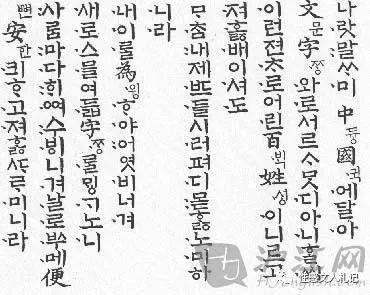 나랏말ᄊᆞ미中듕國귁에달아
文문字ᄍᆞᆼ와로서르ᄉᆞᄆᆞᆺ디아니ᄒᆞᆯᄊᆡ
이런젼ᄎᆞ로어린百ᄇᆡᆨ姓셩이니르고
져ᄒᆞᇙ배이셔도
ᄆᆞᄎᆞᆷ내제ᄠᅳ들시러펴디몯ᄒᆞᇙ노미하
니라
내이ᄅᆞᆯ為윙ᄒᆞ야어엿비너겨
새로스믈여듧字ᄍᆞᆼᄅᆞᆯᄆᆡᇰᄀᆞ노니
사ᄅᆞᆷ마다ᄒᆡᅇᅧ수ᄫᅵ니겨날로ᄡᅮ메便
뼌安한킈ᄒᆞ고져ᄒᆞᇙᄯᆞᄅᆞ미니라